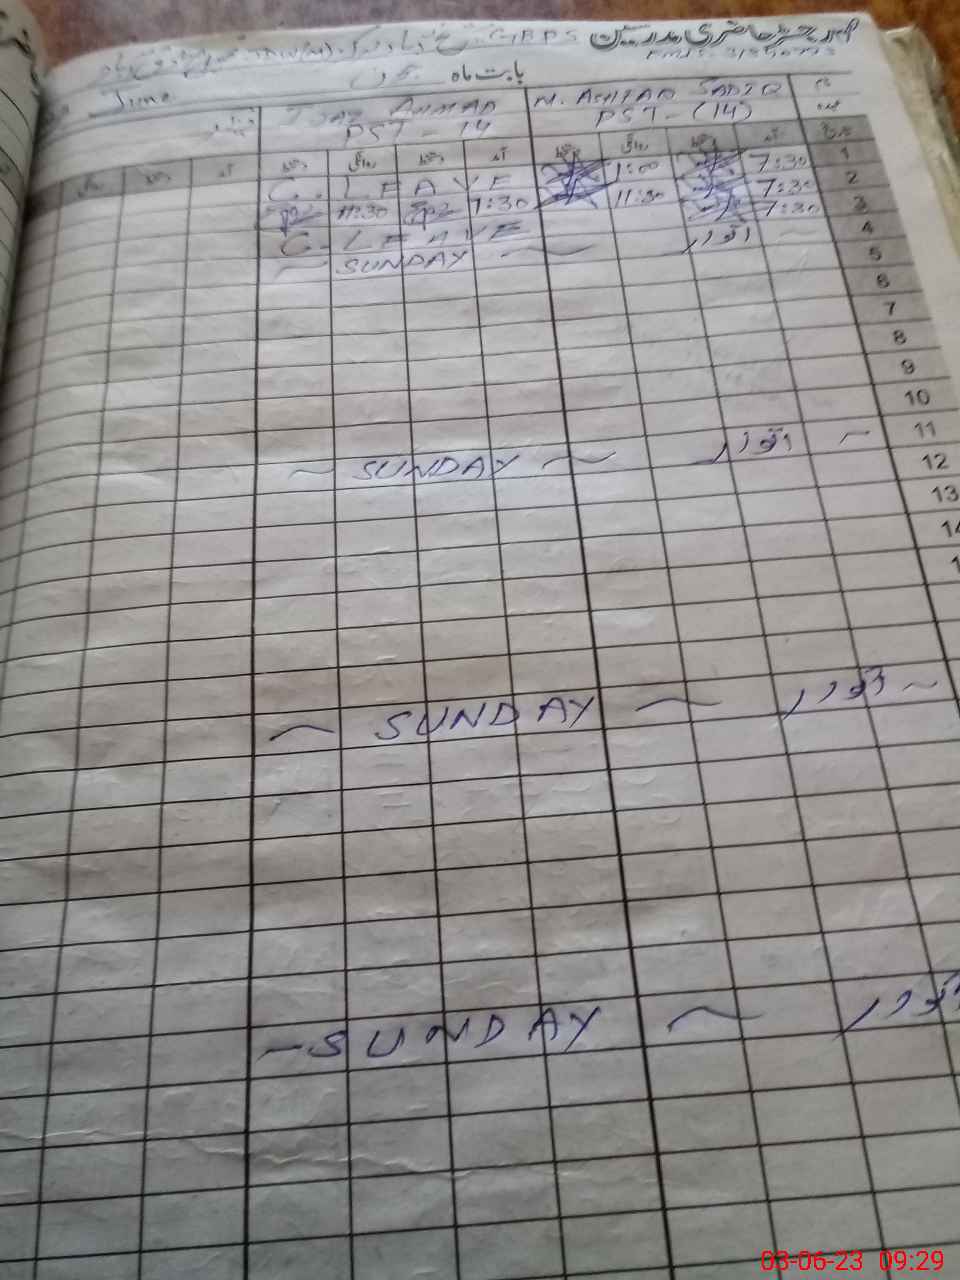 رجسٹر حاضری مدرسین GBPS
بابت ماہ جون
June
نام M. ASHFAQ SADIQ IJAZ AHMAD
عہدہ PST - (14) PST - 14
تاریخ آمد دستخط روانگی دستخط آمد دستخط روانگی دستخط آمد دستخط روانگی
1 7:30 1:00 C. LEAVE
2 7:30 11:30 7:30 11:30
3 7:30 C. LEAVE
4 اتوار ~ SUNDAY ~
5
6
7
8
9
10
11 ~ اتوار ~ SUNDAY ~
12
13
14
1
~ اتوار ~ SUNDAY ~
اتوار ~ SUNDAY ~
03-06-23 09:29